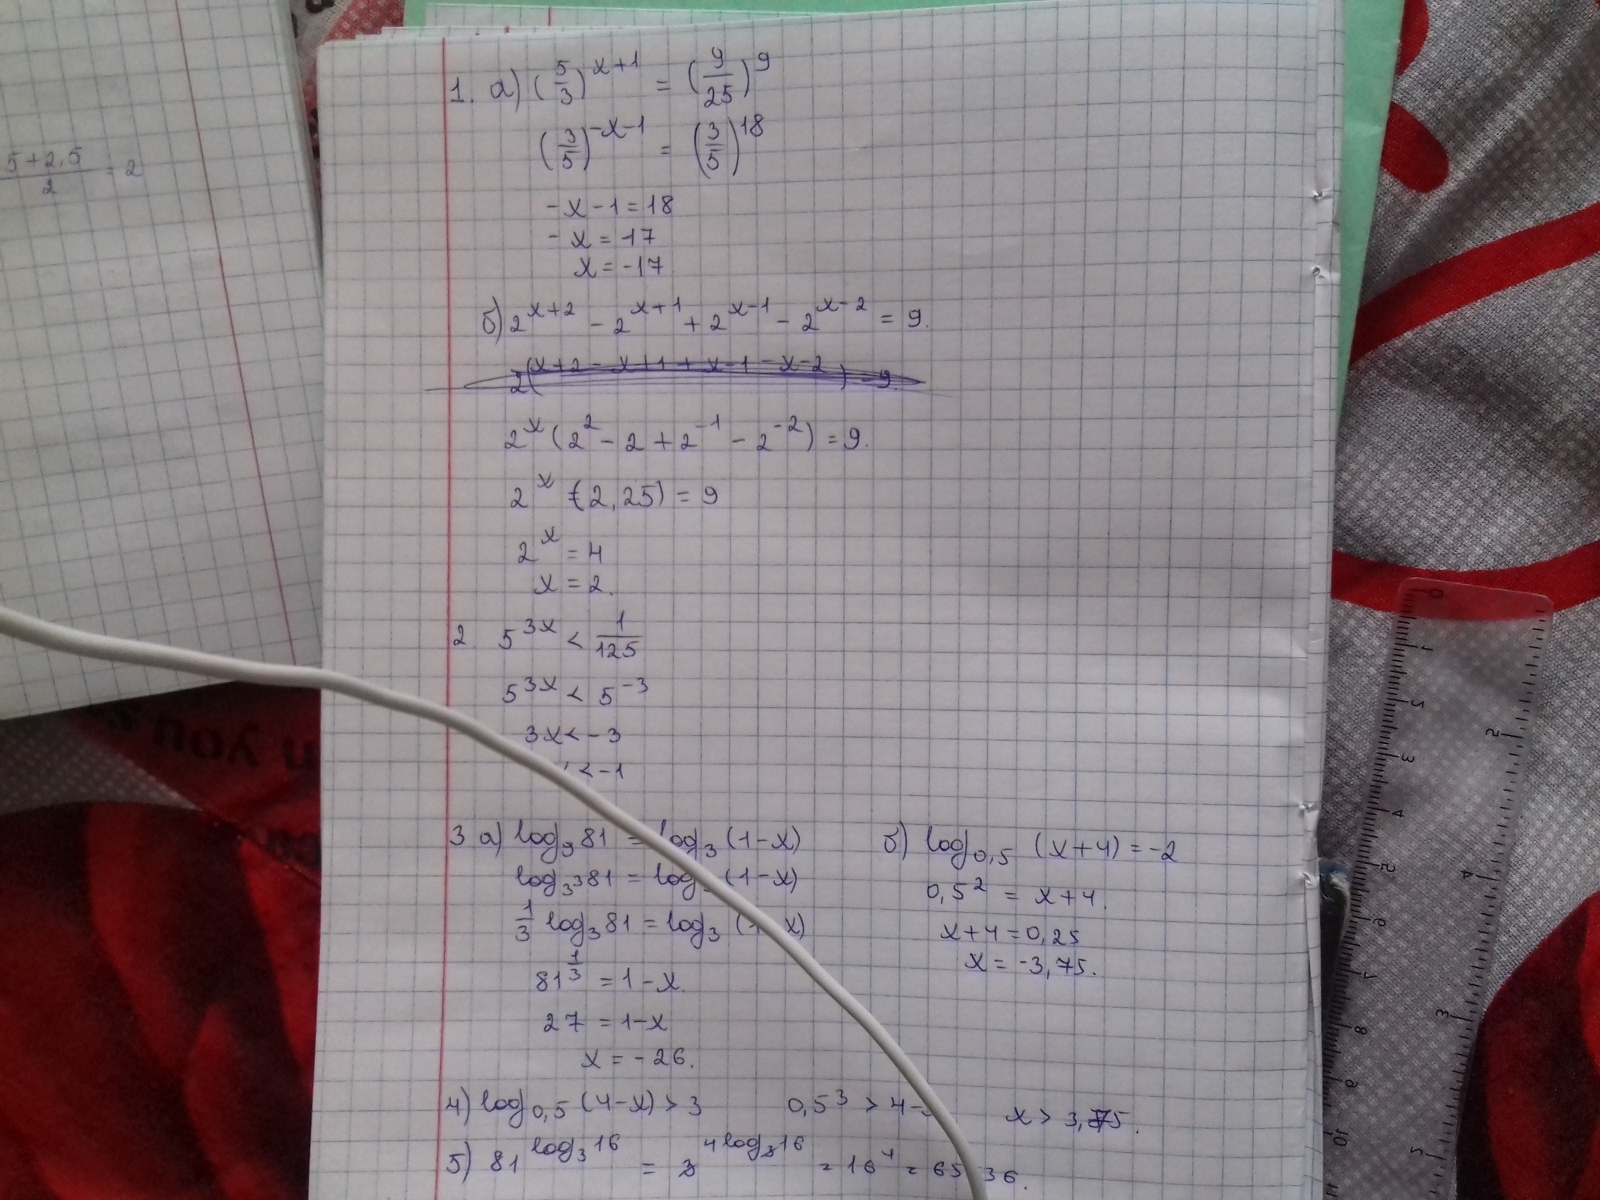 5+2,5 / 2 = 2
1. а) (5/3)^(x+1) = (9/25)^9
(3/5)^(-x-1) = (3/5)^18
-x-1=18
-x=17
x=-17
б) 2^(x+2) - 2^(x+1) + 2^(x-1) - 2^(x-2) = 9.
2^(x+2-x+1+x-1-x-2) = 9.
2^x (2^2 - 2 + 2^-1 - 2^-2) = 9.
2^x (2,25) = 9
2^x = 4
x = 2.
2 5^3x < 1/125
5^3x < 5^-3
3x<-3
<-1
3 а) log_3 81 = log_3 (1-x)
log_3^3 81 = log (1-x)
1/3 log_3 81 = log_3 (1 x)
81^(1/3) = 1-x.
27 = 1-x
x = -26.
б) log_0,5 (x+4) = -2
0,5^2 = x+4.
x+4=0,25
x = -3,75.
4) log_0,5 (4-x) > 3 0,5^3 > 4- x > 3, 5.
5) 81^(log_3 16) = 3^(4log_3 16) = 16^4 = 65 36.
0 1 2 3 4 5 6 7 8 9 10
2 3 4 5